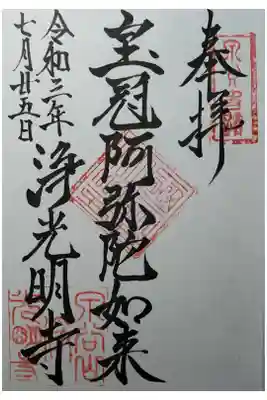 奉拝
宝冠阿弥陀如来
浄光明寺
令和三年
七月廿五日